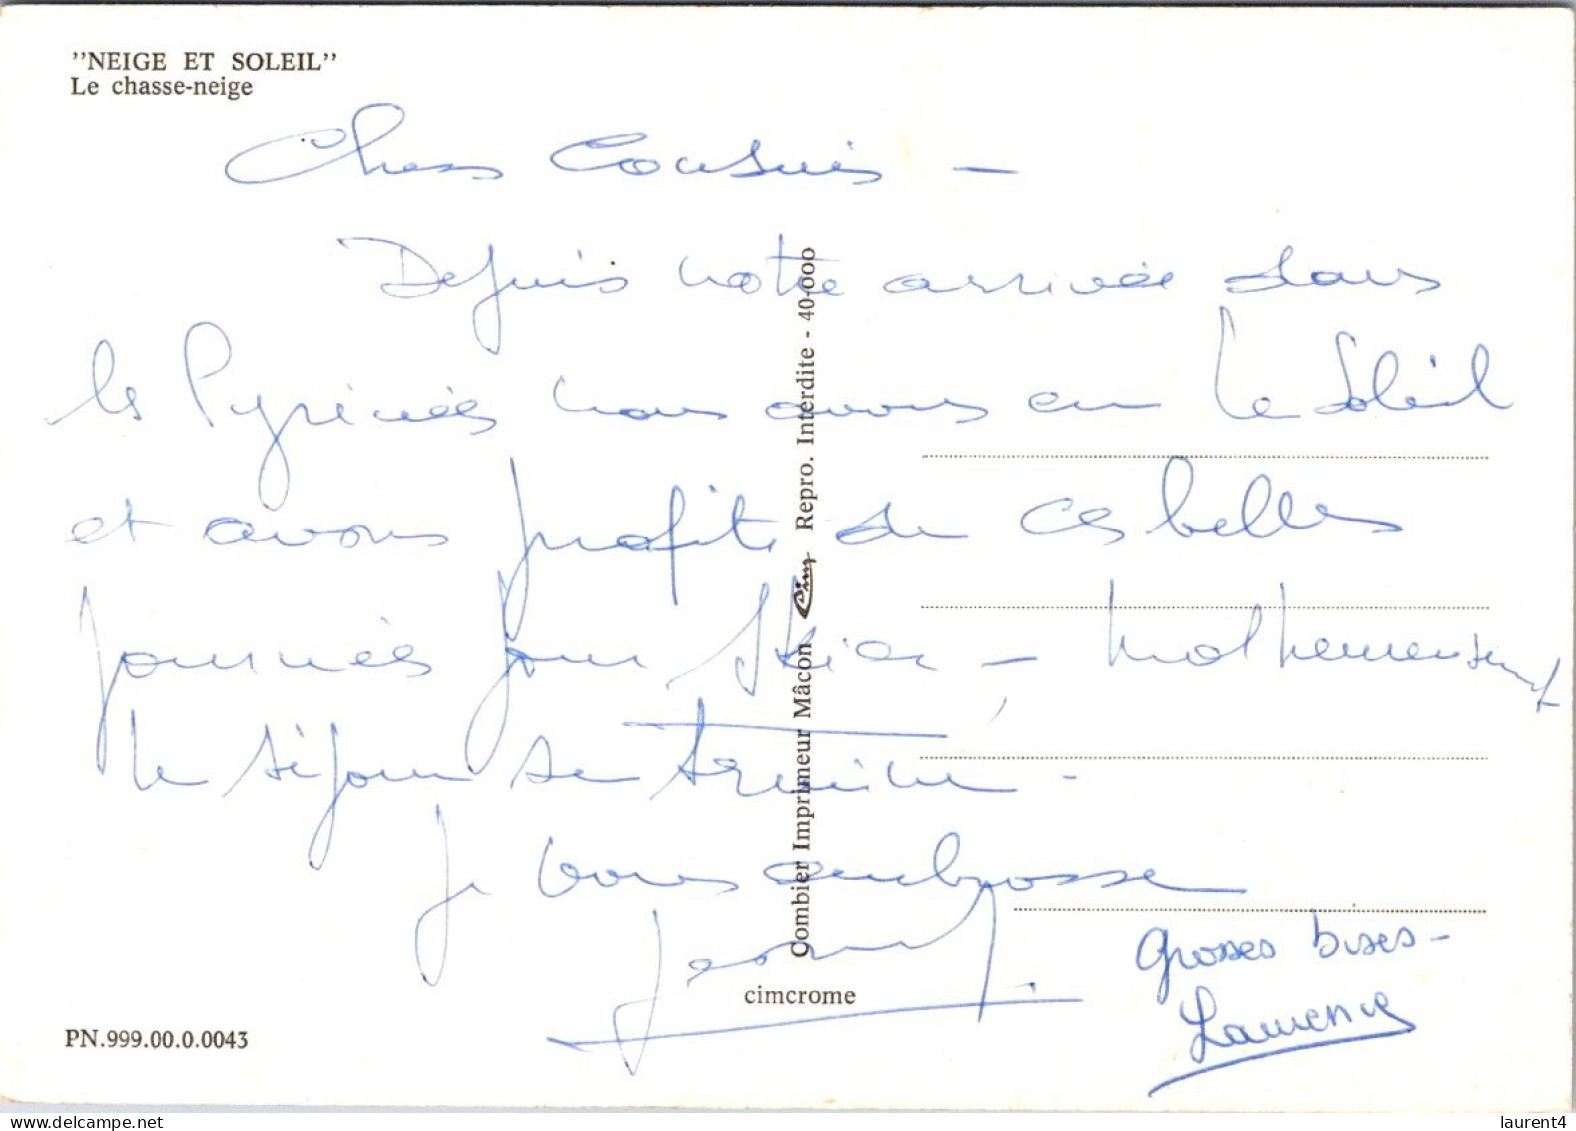 "NEIGE ET SOLEIL"
Le chasse-neige
Chers Cousins -
Depuis notre arrivée dans
les Pyrénées nous avons eu le Soleil
et avons profité de ces belles
journées pour skier - malheureusement
le séjour se termine -
Je vous embrasse
Grosses bises -
Laurence
Combier Imprimeur Mâcon Cim Repro. Interdite - 40-000
cimcrome
PN.999.00.0.0043
laurent4